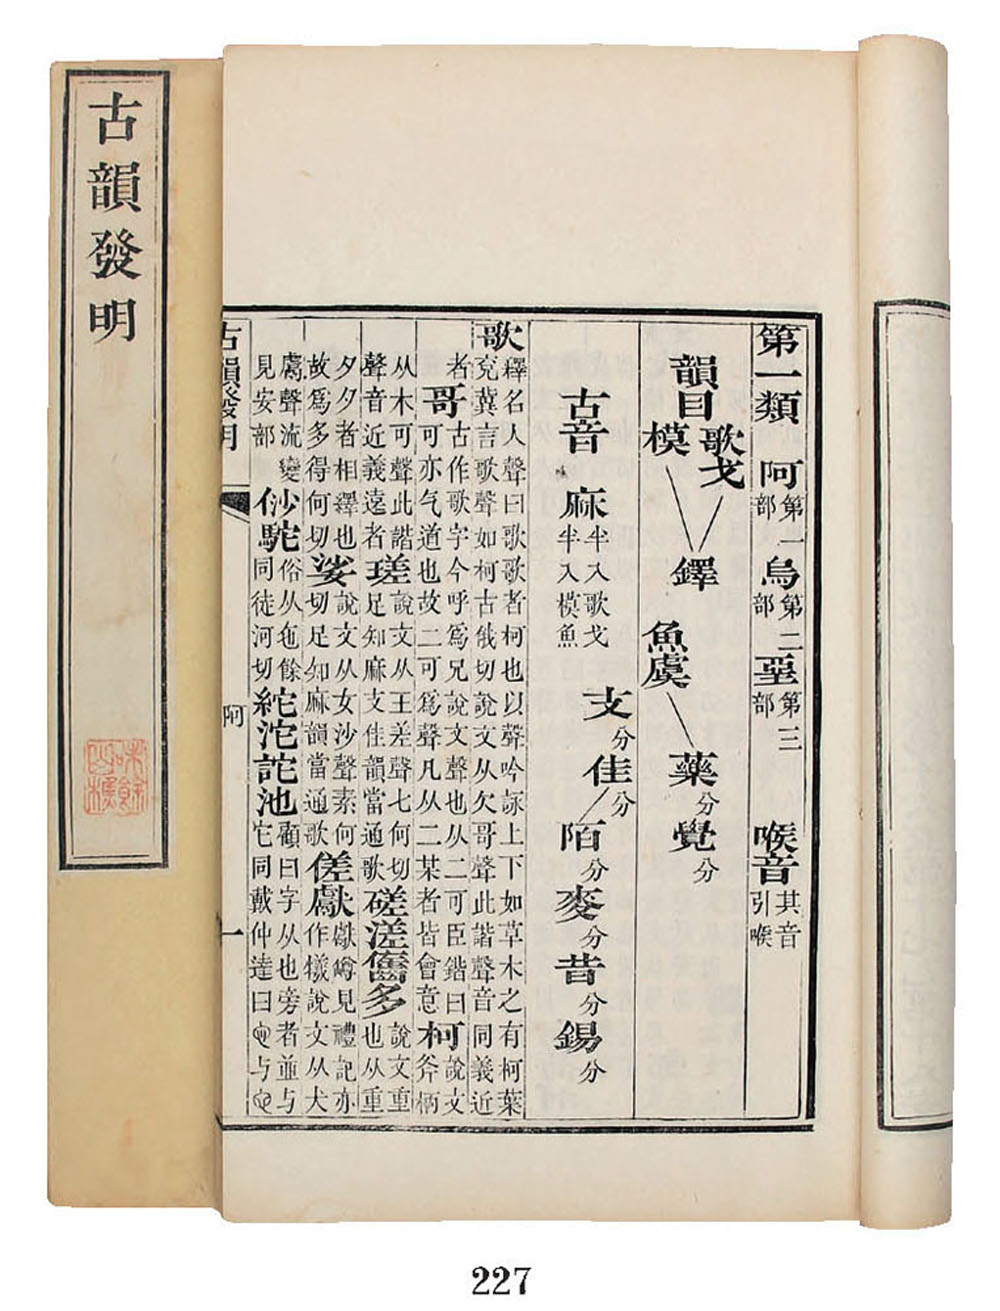 古韻發明
第一類 阿第一部 烏第二部 堊第三部 喉音其音引喉
韻目 歌戈 模 鐸 魚虞 藥分 覺分
古音 麻半入歌戈半入模魚 支分 佳分 陌分 麥分 昔分 錫分
歌釋名人聲曰歌歌者柯也以聲吟詠上下如草木之有柯葉
兖冀言歌聲如柯古俄切說文从欠哥聲此諧聲音同義近
者哥古作歌字今呼爲兄說文聲也从二可臣鍇曰
可亦气道也故二可爲聲凡从二某者皆會意柯說文斧柄
从木可聲此諧聲音近義遠者瑳說文从王差聲七何切
足知麻支佳韻當通歌磋溠儺多說文重也从重
夕夕者相繹也故爲多得何切娑說文从女沙聲素何
切足知麻韻當通歌傞獻獻罇見禮記亦作犧說文从犬
鬳聲流變見安部
駝俗从㐌餘同徒河切
紽沱詑池顧曰字从也旁者並与
它同戴仲達曰
古韻發明
阿
一
227